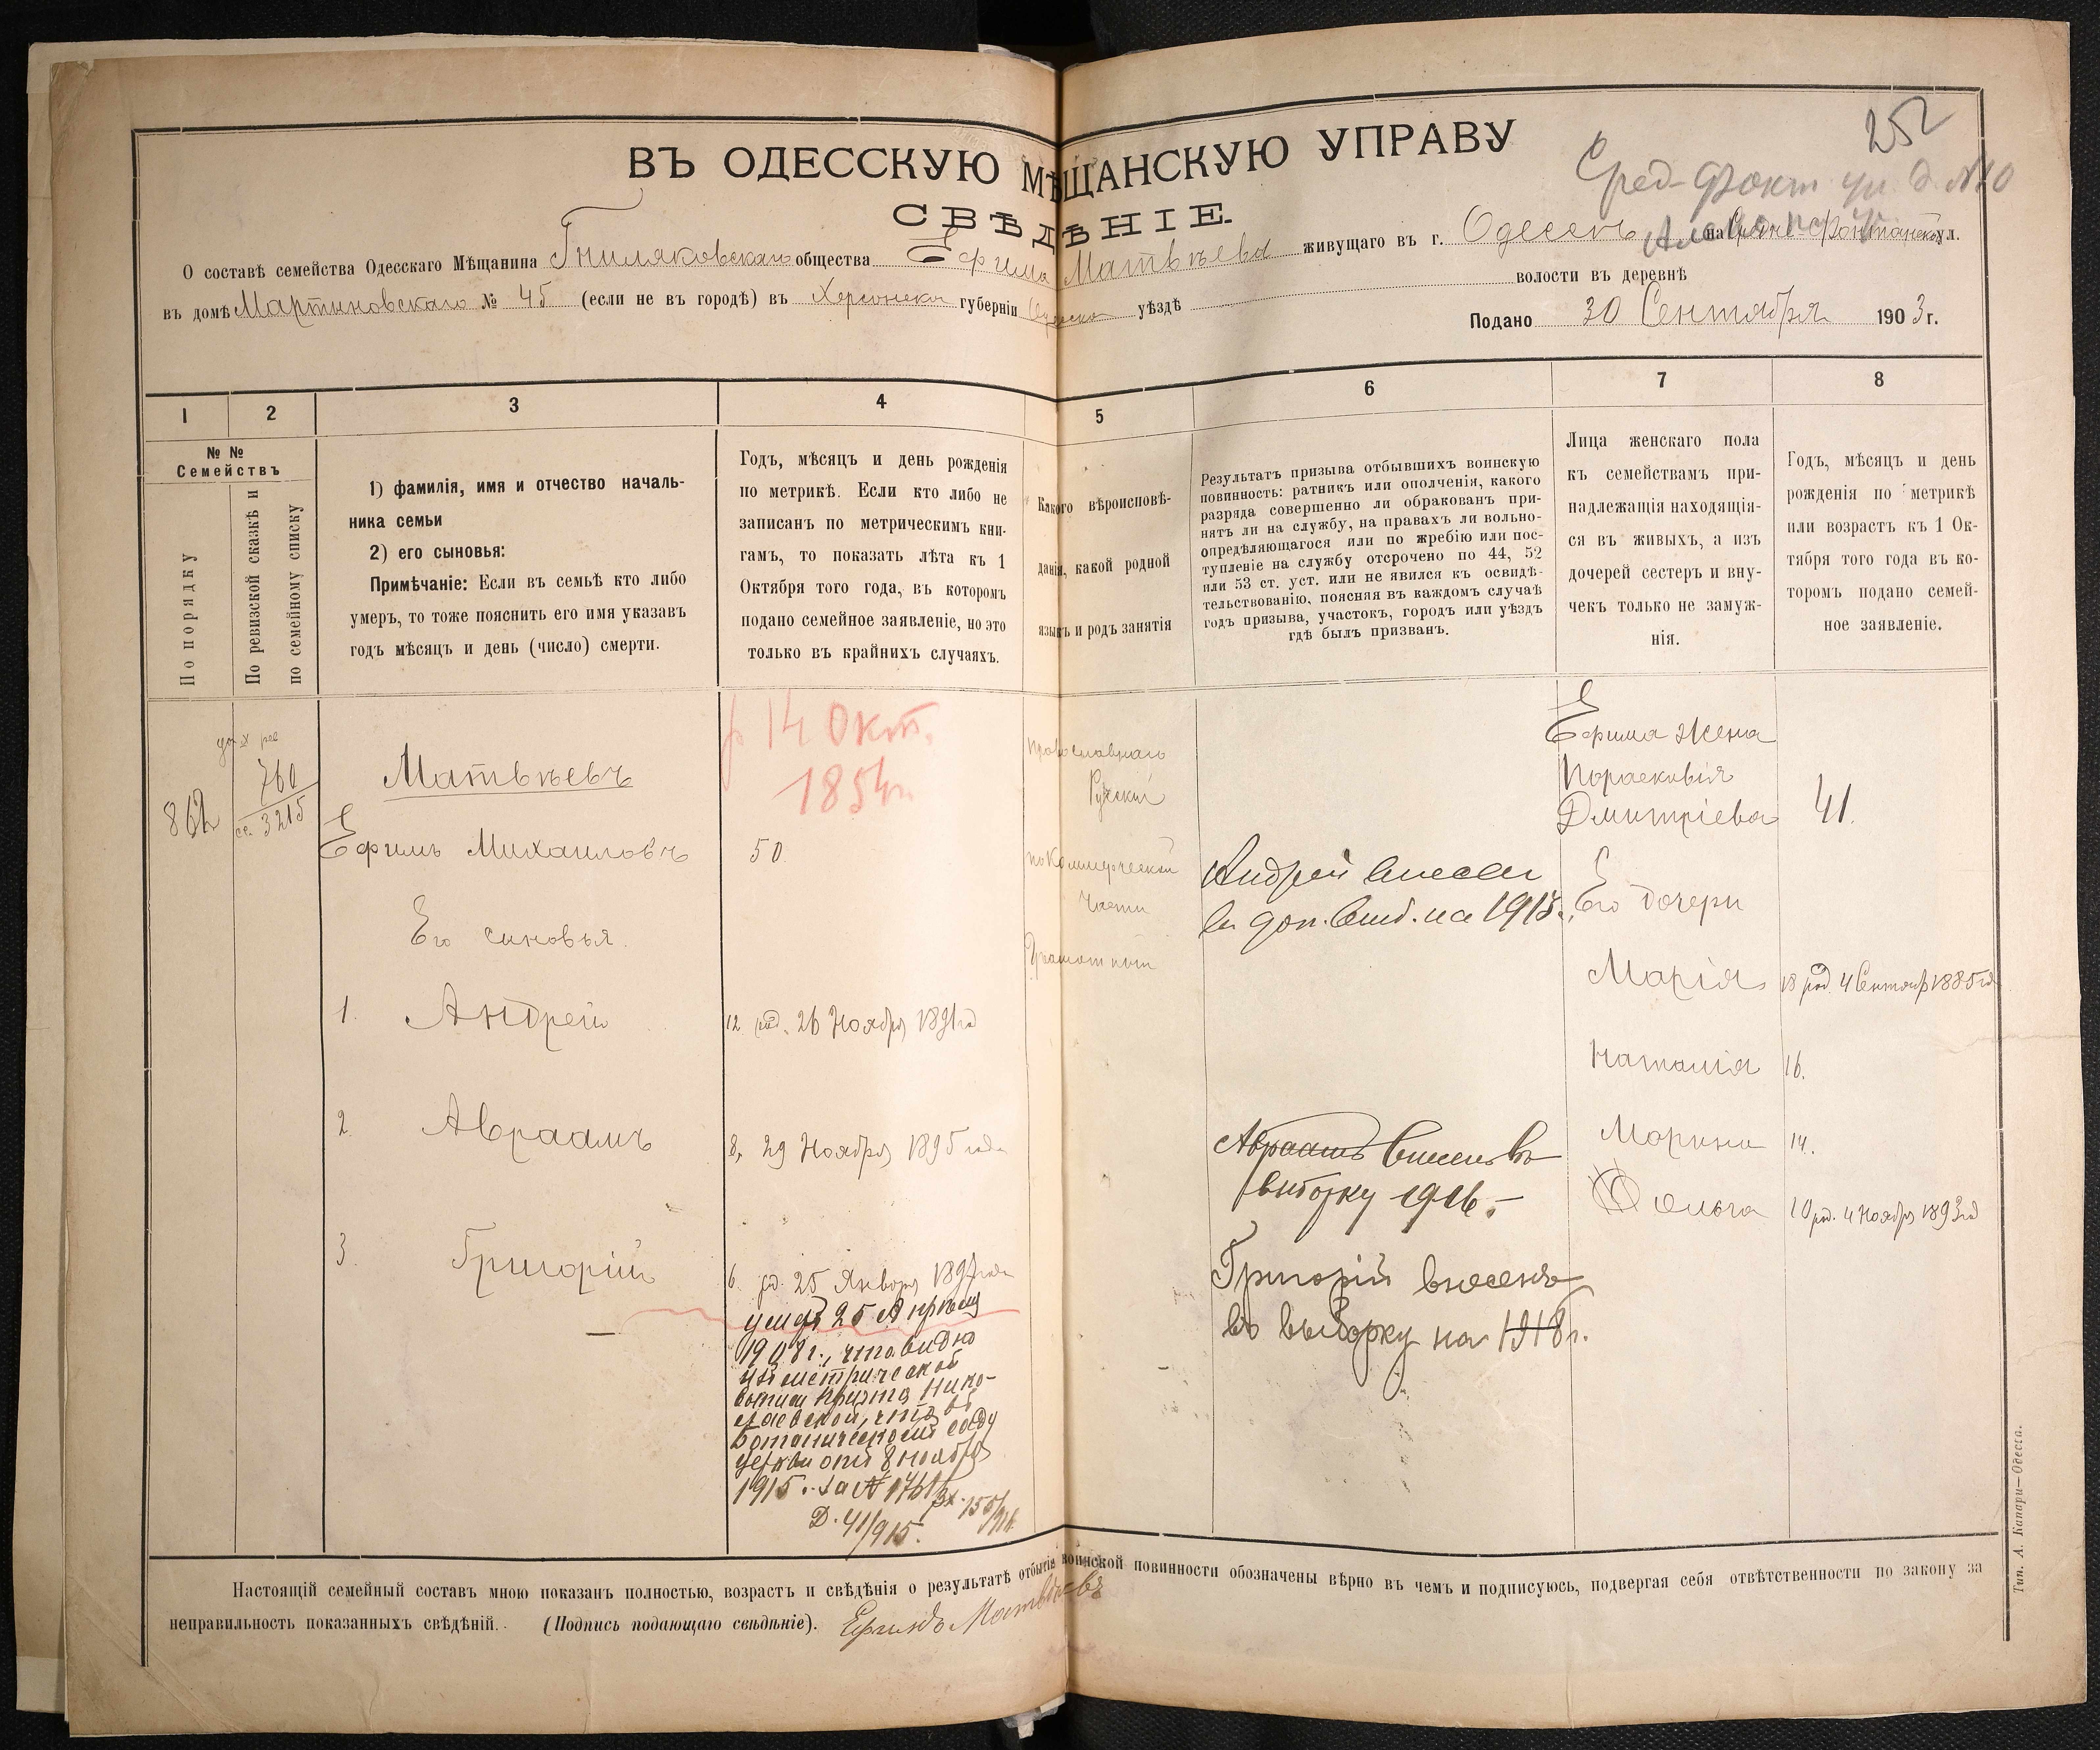 252
Сред-Фонт ул. д. №10
ВЪ ОДЕССКУЮ МѢЩАНСКУЮ УПРАВУ
СВѢДѢНІЕ.
О составѣ семейства Одесскаго Мѣщанина Гниляковскаго общества Ефима Матвѣева живущаго въ г. Одессѣ на Средн-Фонтанской ул.
въ домѣ Мартиновскаго № 45 (если не въ городѣ) въ Херсонской губерніи Одесском уѣздѣ волости въ деревнѣ
Подано 30 Сентября 1903 г.
1
2
3
4
5
6
7
8
№ №
Семействъ
По порядку
По ревизской сказкѣ и
по семейному списку
1) фамилія, имя и отчество началь-
ника семьи
2) его сыновья:
Примѣчаніе: Если въ семьѣ кто либо
умеръ, то тоже пояснить его имя указавъ
годъ мѣсяцъ и день (число) смерти.
Годъ, мѣсяцъ и день рожденія
по метрикѣ. Если кто либо не
записанъ по метрическимъ кни-
гамъ, то показать лѣта къ 1
Октября того года, въ которомъ
подано семейное заявленіе, но это
только въ крайнихъ случаяхъ.
Какого вѣроисповѣ-
данія, какой родной
языкъ и родъ занятія
Результатъ призыва отбывшихъ воинскую
повинность: ратникъ или ополченія, какого
разряда совершенно ли обракованъ при-
нятъ ли на службу, на правахъ ли вольно-
опредѣляющагося или по жребію или пос-
тупленіе на службу отсрочено по 44, 52
или 53 ст. уст. или не явился къ освидѣ-
тельствованію, поясняя въ каждомъ случаѣ
годъ призыва, участокъ, городъ или уѣздъ
гдѣ былъ призванъ.
Лица женскаго пола
къ семействамъ при-
надлежащія находящія-
ся въ живыхъ, а изъ
дочерей сестеръ и вну-
чекъ только не замуж-
нія.
Годъ, мѣсяцъ и день
рожденія по метрикѣ
или возрастъ къ 1 Ок-
тября того года въ ко-
торомъ подано семей-
ное заявленіе.
862
760
сс. 3215
Матвѣевъ
Ефимъ Михаиловъ
Его синовья.
1. Андрей
2. Авраамъ
3. Григорій
р 14 Окт.
1854 г.
50
12 род. 26 Ноября 1891 год
8, 29 Ноября 1895 года
6. род. 25 Января 1897 года
умеръ 25 Апрѣля
1908 г., что видно
изъ метрической
выписи причта Нико-
лаевской, что въ
Ботаническомъ саду
церкви отъ 8 ноября
1915 г. за № 1761
Вх. 150/916.
Д. 41/915.
Православнаго
Русскій
по Комиерческой
Части
Грамотный
Андрей внесен
в доп. выб. на 1913 г.
Авраамъ внесенъ въ
выборку 1916. —
Григорій внесенъ
въ выборку на 1918 г.
Ефима Жена
Пораскивія
Дмитріева
41.
Его дочери
Марія
18 род. 4 Сентяб 1885 год
Наталія
16.
Морина
14.
Ольга
10 род. 4 Ноября 1893 год
Настоящій семейный составъ мною показанъ полностью, возрастъ и свѣдѣнія о результатѣ отбытіе воинской повинности обозначены вѣрно въ чемъ и подписуюсь, подвергая себя отвѣтственности по закону за
неправильность показанныхъ свѣдѣній. (Подпись подающаго свѣдѣніе). Ефимъ Матвѣевъ
Тип. А. Катари—Одесса.